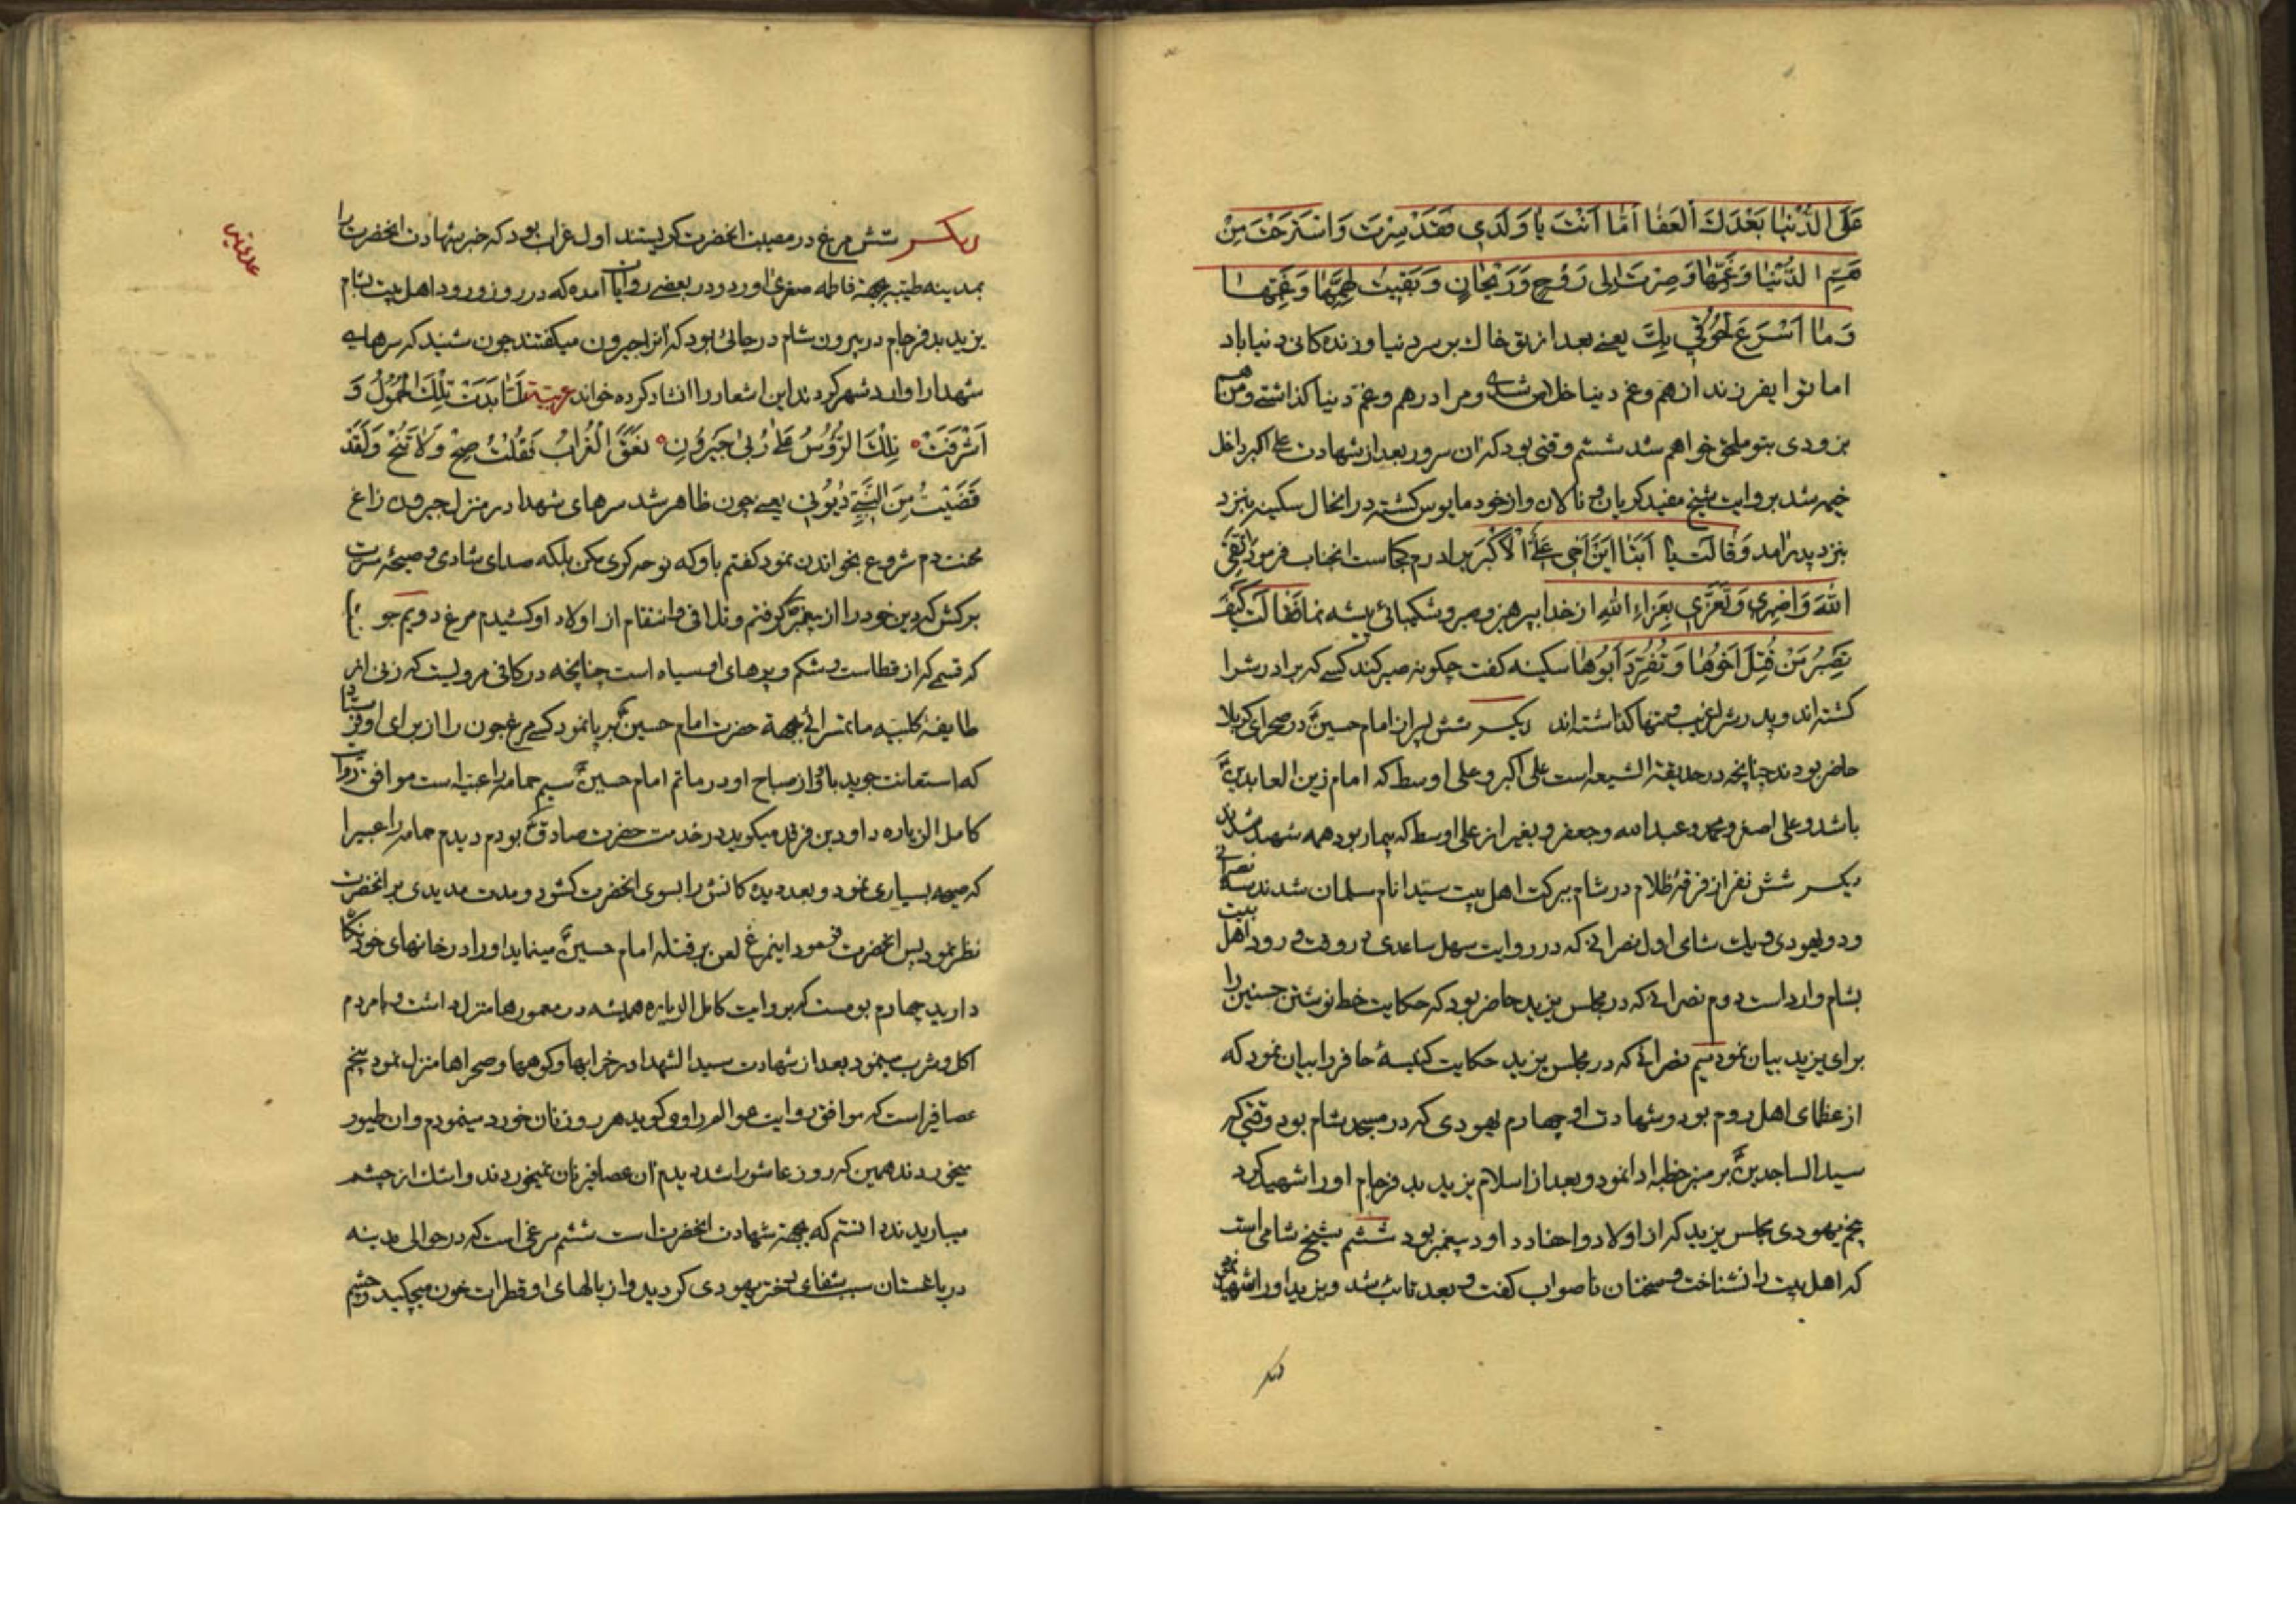 عَلَی الدُّنْیٰا بَعْدَكَ الْعَفٰا اَمّٰا اَنْتَ یٰا وَلَدِی فَقَدْ صِرْتَ وَاسْتَرَحْتَ مِنْ
هَمِّ الدُّنْیٰا وَغَمِّهٰا وَصِرْتَ اِلی رَوْحٍ وَرَیْحٰانٍ وَبَقِیتُ لِهَمِّهٰا وَغَمِّهٰا
وَمٰا اَسْرَعَ لُحُوقِی بِكَ یعنے بعد از تو خاك بر سر دنیا و زنده کانی دنیا باد
اما تو ایفرزند از هم و غم دنیا خلاص شدے و مرا در هم و غم دنیا کذاشتے و من هم
بزودی بتو ملحق خواهم شد ششم وقتی بود که ان سرور بعد از شهادت علے اکبر داخل
خیمه شد بروایت شیخ مفید کریان و نالان و از خود مایوس کشته در انحال سکینه بنزد
بنزد پدر امد وَقٰالَت یٰا اَبَتٰا اَیْنَ اَخِی عَلِیُّ الْاَکْبَر برادرم کجاست انجناب فرمود اتَّقِی
اللّٰهَ وَاصْبِرِی وَتَعَزَّی بِعَزٰاءِ اللّٰهِ از خدا بپرهیز و صبر و شکیبائی پیشه نما فَقٰالَت کَیْفَ
تَصْبِرُ مَنْ قُتِلَ اَخُوهٰا وَتُفَرَّدَ اَبُوهٰا سکینه کفت چکونه صبر کند کسے که برادرش را
کشته اند و پدرش را غریب و تنها کذاشته اند دیکر شش پسر از امام حسینؑ در صحرای کربلا
حاضر بودند چنانچه در حدیقة الشیعه است علی اکبر و علی اوسط که امام زین العابدینؑ
باشد و علی اصغر و محمد و عبدالله و جعفر و بغیر از علی اوسط که بیمار بود همه شهید شدند
دیکر شش نفر از فرقهٔ ظلام در شام ببرکت اهل بیت سیّد انام مسلمان شدند سه نصرانی
و دو یهودی و یك شامی اول نصرانے که در روایت سهل ساعدی در وقت ورود اهل بیت
بشام وارد است دوم نصرانے که در مجلس یزید حاضر بود که حکایت خط نوشتن حسنین را
برای یزید بیان نمود سیم نصرانے که در مجلس یزید حکایت کنیسهٔ حافر را بیان نمود که
از عظمای اهل روم بود و شهادت او چهارم یهودی که در مسجد شام بود وقتی که
سیدالساجدینؑ بر منبر خطبه ادا نمود و بعد از اسلام یزید بد فرجام اورا شهید کرد
پنجم یهودی مجلس یزید که از اولاد و احفاد داود پیغمبر بود ششم شیخ شامی است
که اهل بیت را نشناخت و سخنان ناصواب کفت و بعد تائب شد و یزید اورا شهید نمود
دیکر
دیکر شش مرغ در مصیبت انحضرت کریستند اول غراب بود که خبر شهادت انحضرت را
بمدینه طیبه بجهة فاطمه صغری اورد و در بعضے روایات آمده که در روز ورود اهل بیت بشام
یزید بد فرجام در بیرون شام در جائی بود که انرا جیرون میکفتند چون شنید که سرهاے
شهدا را وارد شهر کردند این اشعار را انشاد کرده خواند عربیة لَمّٰا بَدَتْ تِلْكَ الْحُمُولُ وَ
اَشْرَفَتْ تِلْكَ الرُّؤُسُ عَلیٰ رُبیٰ جَیْرُونِ نَعَقَ الْغُرٰابُ فَقُلْتُ صِحْ وَلاٰ تَصِحْ وَلَقَدْ
قَضَیْتُ مِنَ النَّبِیِّ دُیُونِی یعنے چون ظاهر شد سرهای شهدا در منزل جیرون زاغ
محنت دم شروع بخواندن نمود کفتم باو که نوحه کری مکن بلکه صدای شادی و صیحهٔ مسرت
برکش که دین خود را از پیغمبر کرفتم و تلافی و انتقام از اولاد او کشیدم مرغ دویم جو
که قسمے که از قطاست و شکم و پرهای او سیاه است چنانچه در کافی مرویست که زنی از
طایفهٔ کلبیه ماتمسرائے بجهة حضرت امام حسینؑ برپا نمود کسے مرغ جون را از برای او فرستاد
که استعانت جوید باو از صباح او در ماتم امام حسینؑ سیم حمامه راعبیه است موافق روایت
کامل الزیاره داود بن فرقد میکوید در خدمت حضرت صادقؑ بودم دیدم حمامه راعبیه را
که صیحه بسیاری نمود و بعد دیده کانش را بسوی انحضرت کشود و مدت مدیدی بر انحضرت
نظر نمود پس انحضرت فرمود اینمرغ لعن بر قتله امام حسینؑ مینماید اورا در خانهای خود نکاه
دارید چهارم بومست که بروایت کامل الزیاره همیشه در معمورها منزل داشت و با مردم
اکل و شرب مینمود بعد از شهادت سیدالشهدا در خرابها و کوهها و صحراها منزل نمود پنجم
عصافیر است که موافق روایت عوالم راوی کوید هر روز نان خورد مینمودم و ان طیور
میخوردند همین که روز عاشورا شد دیدم ان عصافیر نان نمیخوردند و اشك از چشم
میباریدند دانستم که بجهة شهادت انحضرت است ششم مرغی است که در حوالی مدینه
در باغستان سبب شفای دختر یهودی کردید و از بالهای او قطرات خون میچکید و چشم